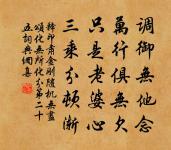 調御無他念
萬行俱無欠
只是老婆心
三乘分頓漸
釋印肅金剛隨機無盡
頌化無所化分第二十
五詞典網